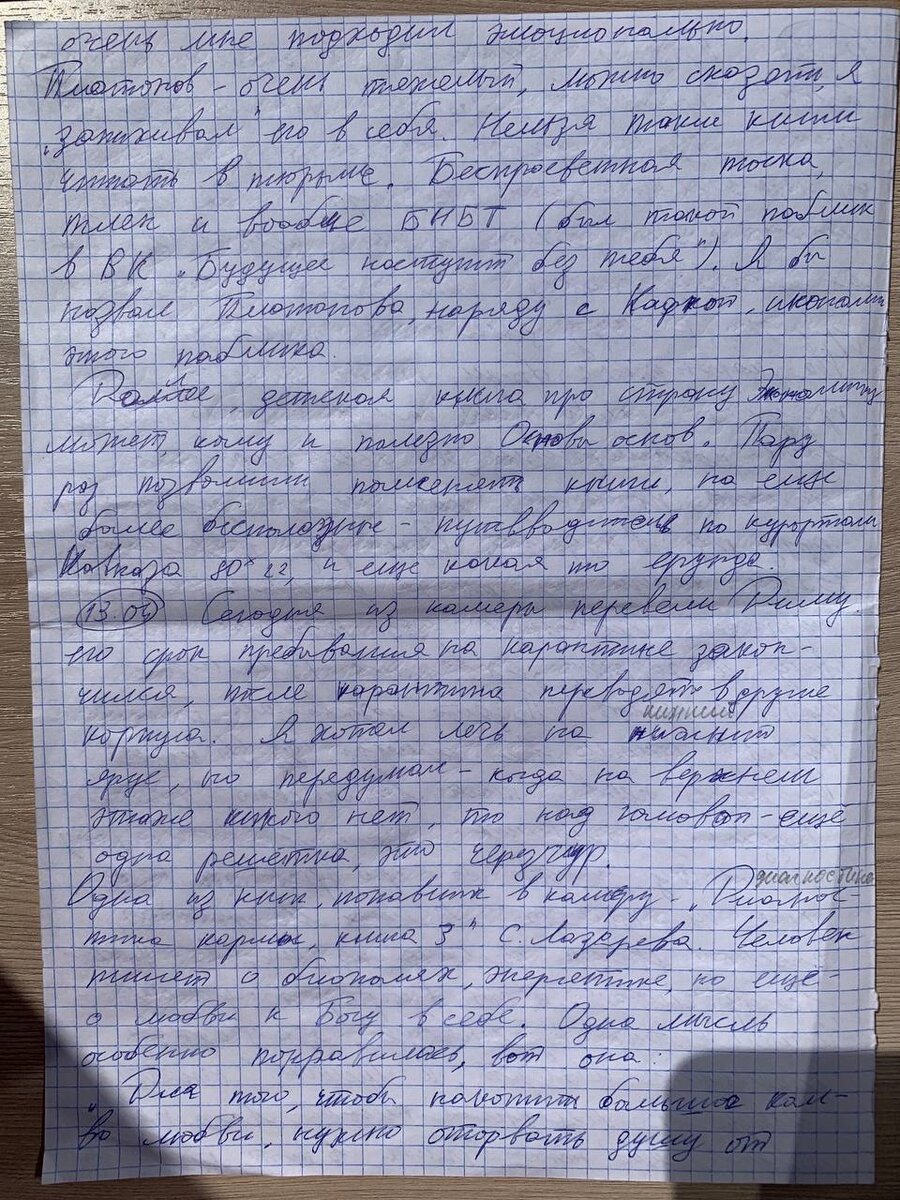 очень мне подходил эмоционально.
Платонов - очень тяжелый, можно сказать, я
„запихивал" его в себя. Нельзя такие книги
читать в тюрьме. Беспросветная тоска,
тлен и вообще БНБТ (был такой паблик
в ВК „Будущее наступит без тебя"). Я бы
назвал Платонова, наряду с Кафкой, иконами
этого паблика.
Далее, детская книга про страну Экономику
может, кому и полезно Основы основ. Пару
раз позволили поменять книги, на еще
более бесполезные - путеводитель по курортам
Кавказа 80х гг, и еще какая то ерунда.
13.04 Сегодня из камеры перевели Диму.
его срок пребывания на карантине закон-
чился, после карантина переводят в другие
корпуса. Я хотел лечь на нижний
нижний
ярус, но передумал - когда на верхнем
этаже никого нет, то над головой - ещё
одна решетка, это чересчур.
Одна из книг, попавших в камеру - „Диагнос-
диагностика
тика кармы, книга 3" С. Лазарева. Человек
пишет о биополях, энергетике, но ещё -
о любви к Богу в себе. Одна мысль
особенно понравилась, вот она:
„Для того, чтобы накопить большое кол-
во любви, нужно оторвать душу от